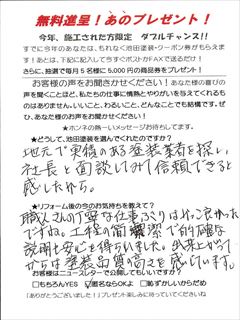 無料進呈！あのプレゼント！
今年、施工された方限定 ダブルチャンス!!
すでに今年のあなたは、もれなく池田塗装・クーポン券がもらえま
す！あとは、下記に記入して今すぐポストかFAXで送るだけ！
さらに、抽選で毎月5名様に5,000円の商品券をプレゼント！
お客様の声をお聞かせください！あなた様の喜びの
声を聞くことほど、私たちの仕事に情熱とやりがいを与えてくれるも
のはありません。いいこと、わるいこと、どんなことでも結構です。ぜ
ひ、あなた様のお声をお聞かせください！
★ホンネの熱～いメッセージお待ちしてます。
★どうして、池田塗装を選んでくれたのですか？
地元で実積のある塗装業者を探し、
社長と面談してみて信頼できると
感じたから。
★リフォーム後の今のお気持ちを教えて？
職人さんの丁寧な仕事ぶりはカッコ良かった
ですね。工程の簡潔で的確な
説明も安心を得られました。出来上がって
からは塗装品質の高さを感じています。
お客様はニュースレターで公開してもいいですか？
□もちろんYES ☑匿名ならOKよ □恥ずかしいからだめ
「ありがとうございました！」プレゼント楽しみに待っててくださいね